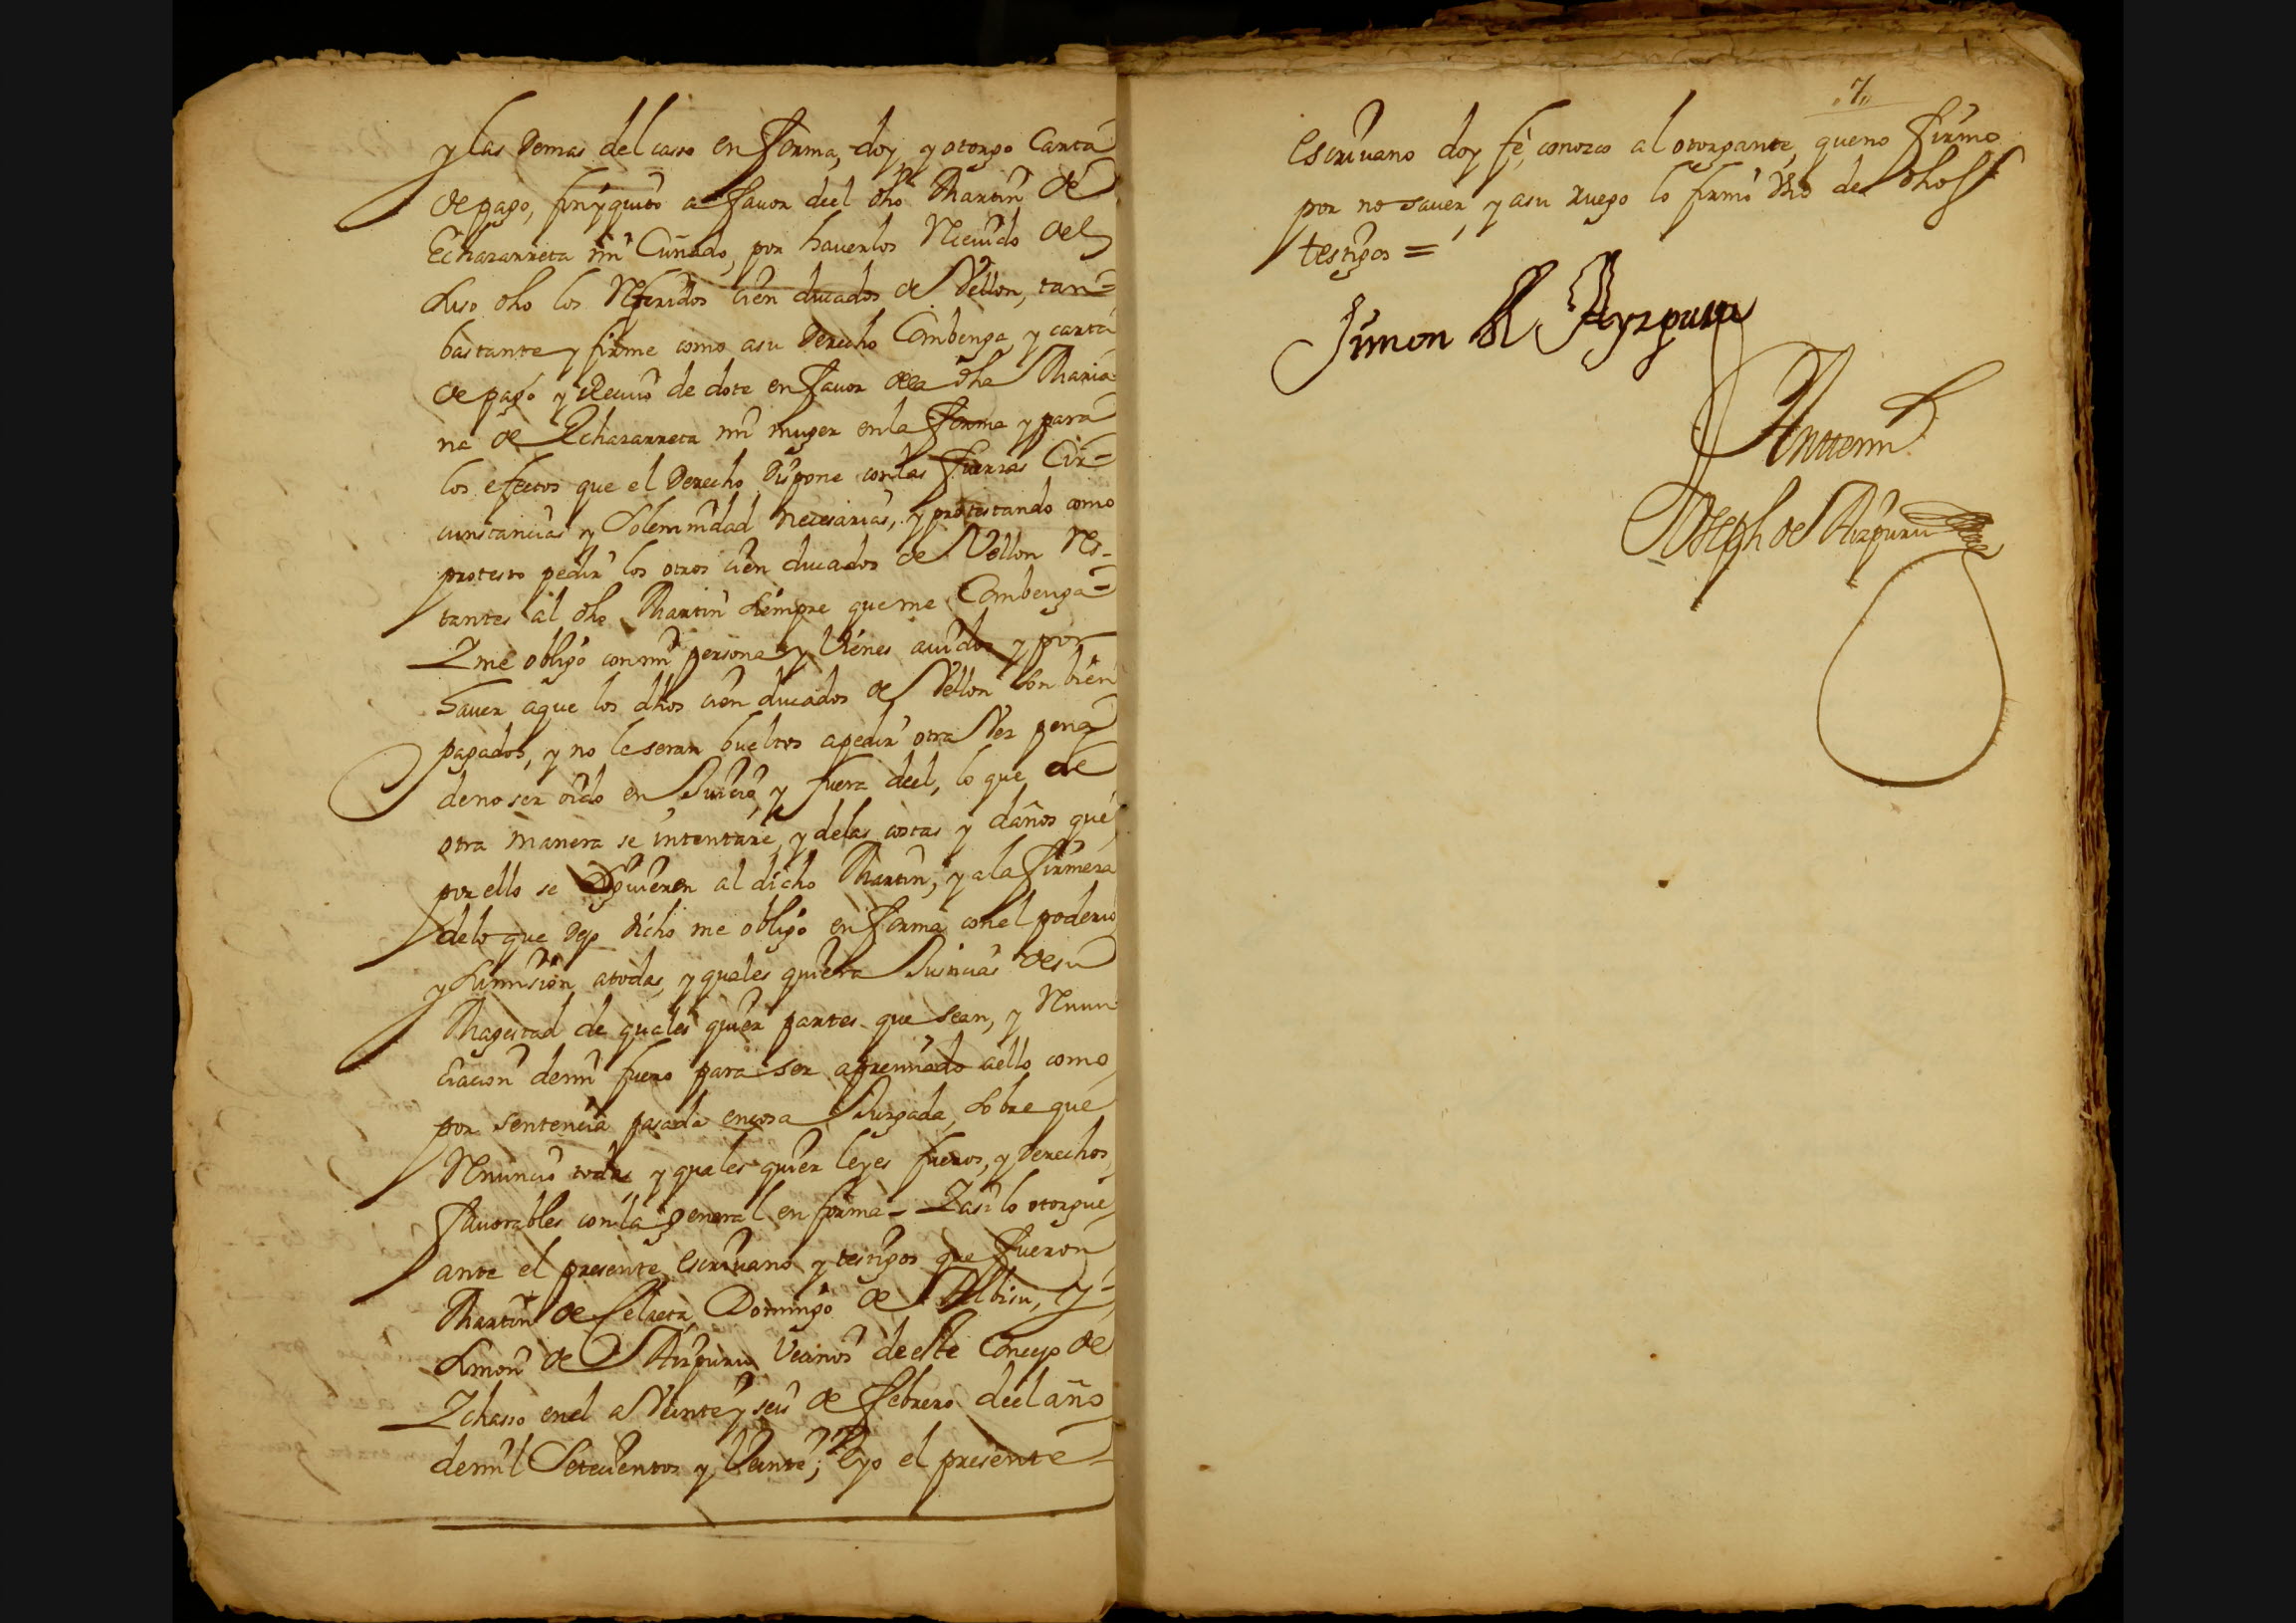 y las demas del casso en forma, doy, y otorgo Carta
de pago, finyquito a favor del dho Martin de
Echazarreta mi Cuñado, por haverlos Recivido del
suso dho los Referidos cien ducados de Vellon, tan=
bastante y firme como asu derecho Combenga, y carta
de pago y Recivo de dote en favor dela dha Maria
na de Echazarreta mi muger enla forma y para
los efectos que el derecho dispone conlas fuerzas Cir=
cunstancias y Solemnidad necesarias, y protestando como
protesto pedir los otros cien ducados de Vellon Res-
tantes al dho Martin siempre queme Combenga=
Y me obligo conmi persona y bienes avidos y por
haver aque los dhos cien ducados de Vellon son bien
pagados, y no le seran bueltos apedir otra Vez pena
denoser oido en Juicio, y fuera deel, lo que de
otra manera se intentare, y delas costas y daños que
por ello se siguieren al dicho Martin, y ala firmeza
delo que dejo dicho me obligo en forma conel poderio
y sumision atodas, y quales quiera Justicias desu
Magestad de quales quier partes que sean, y Renun
ciacion demi fuero para ser apremiado aello como
por sentencia pasada encosa Juzgada, sobre que
Renuncio todas y quales quier leyes fueros, y derechos
favorables conla general en forma- Y asi lo otorgue
ante el presente escrivano y testigos que fueron
Martin de Celaeta, Domingo de Albisu, y=
Simon de Aizpuru Vecinos de este Concejo de
Ychasso enel a Veinte y seis de febrero deel año
demil Setecientos y Veinte; E yo el presente
"7"
escrivano doy fe, conozco al otorgante, queno firmo
por no saver, y asu ruego lo firmo Vno de dhos
testigos =
Simon de Ayzpuru
Anttemi
Joseph de Aizpuru